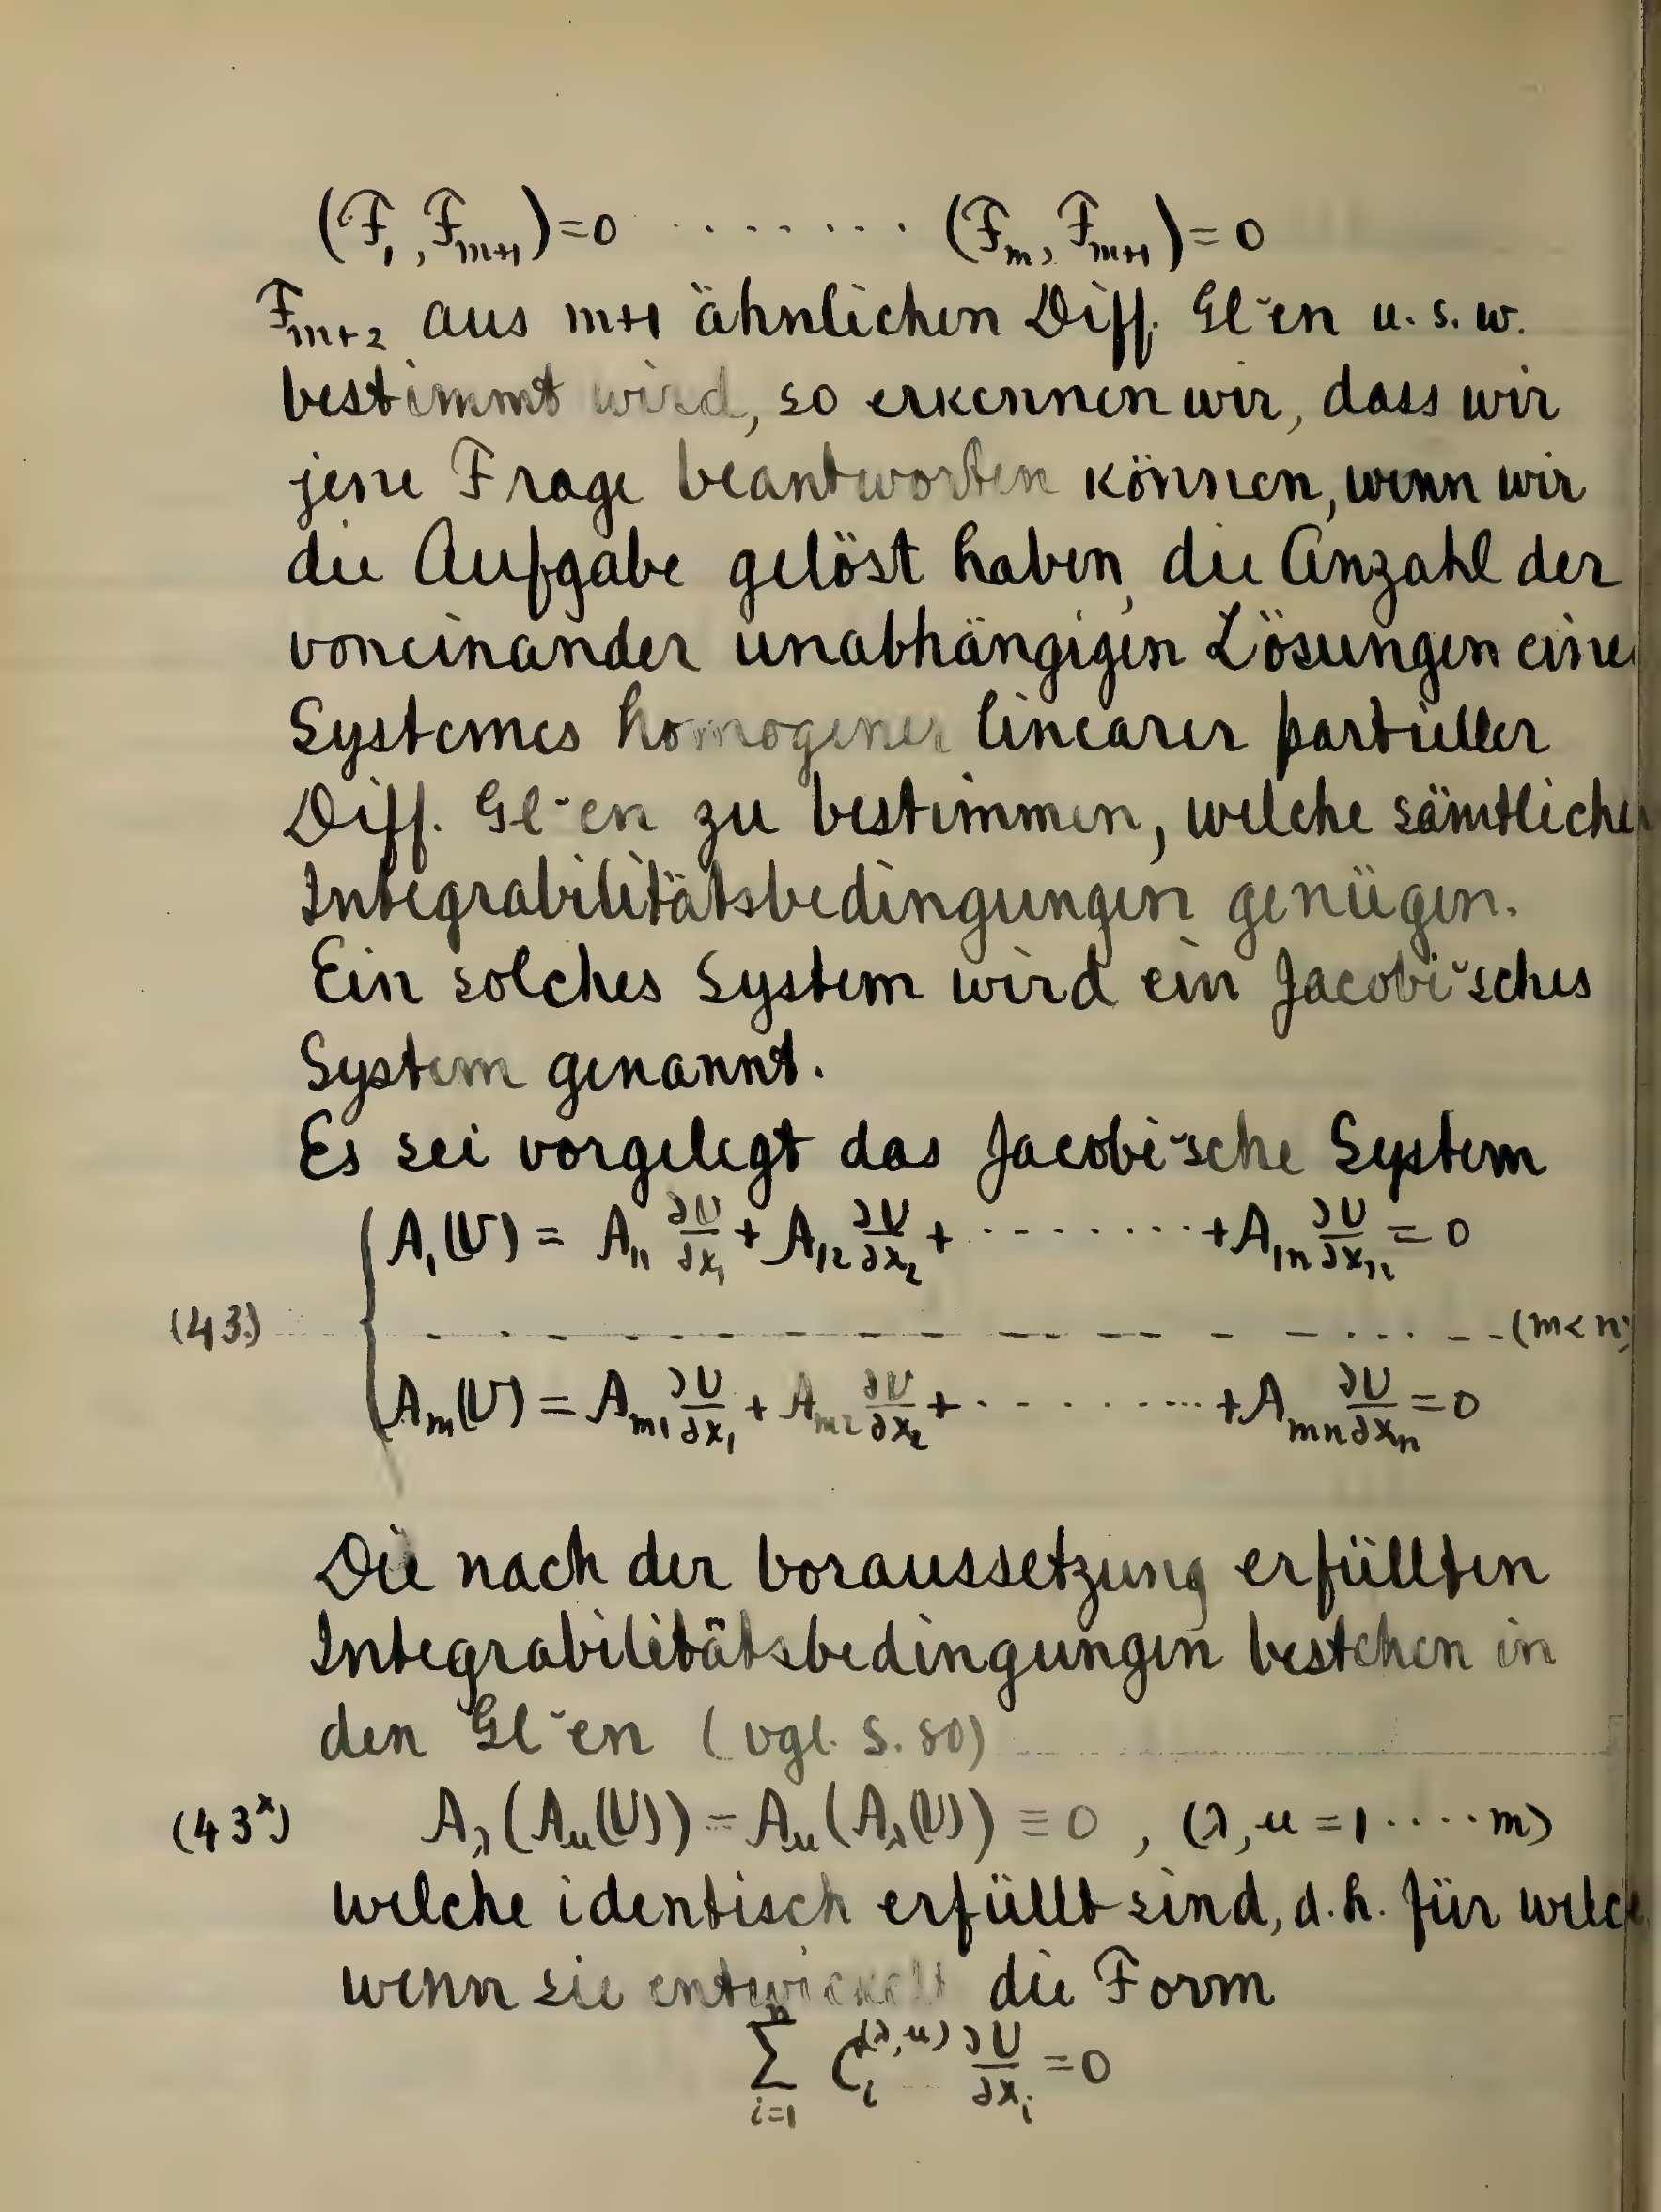 (F₁, F_{m+1}) = 0 ........ (F_m, F_{m+1}) = 0
F_{m+2} aus m+1 ähnlichen Diff. Gl-en u. s. w.
bestimmt wird, so erkennen wir, dass wir
jene Frage beantworten können, wenn wir
die Aufgabe gelöst haben, die Anzahl der
voneinander unabhängigen Lösungen eine
Systemes homogener linearer partieller
Diff. Gl-en zu bestimmen, welche sämtlichen
Integrabilitätsbedingungen genügen.
Ein solches System wird ein Jacobi'sches
System genannt.
Es sei vorgelegt das Jacobi'sche System
A₁(U) = A₁₁ ∂U/∂x₁ + A₁₂ ∂U/∂x₂ + ........ + A₁ₙ ∂U/∂xₙ = 0
(43) - - - - - - - - - - - - - - - (m < n)
A_m(U) = A_{m1} ∂U/∂x₁ + A_{m2} ∂U/∂x₂ + ........ + A_{mn} ∂U/∂xₙ = 0
Die nach der Voraussetzung erfüllten
Integrabilitätsbedingungen bestehen in
den Gl-en (vgl. S. 80)
(43ˣ) A_λ(A_μ(U)) - A_μ(A_λ(U)) ≡ 0 , (λ, μ = 1 ..... m)
welche identisch erfüllt sind, d. h. für welche
wenn sie entwickelt die Form
∑_{i=1}^{n} C_i^{(λ,μ)} ∂U/∂x_i = 0